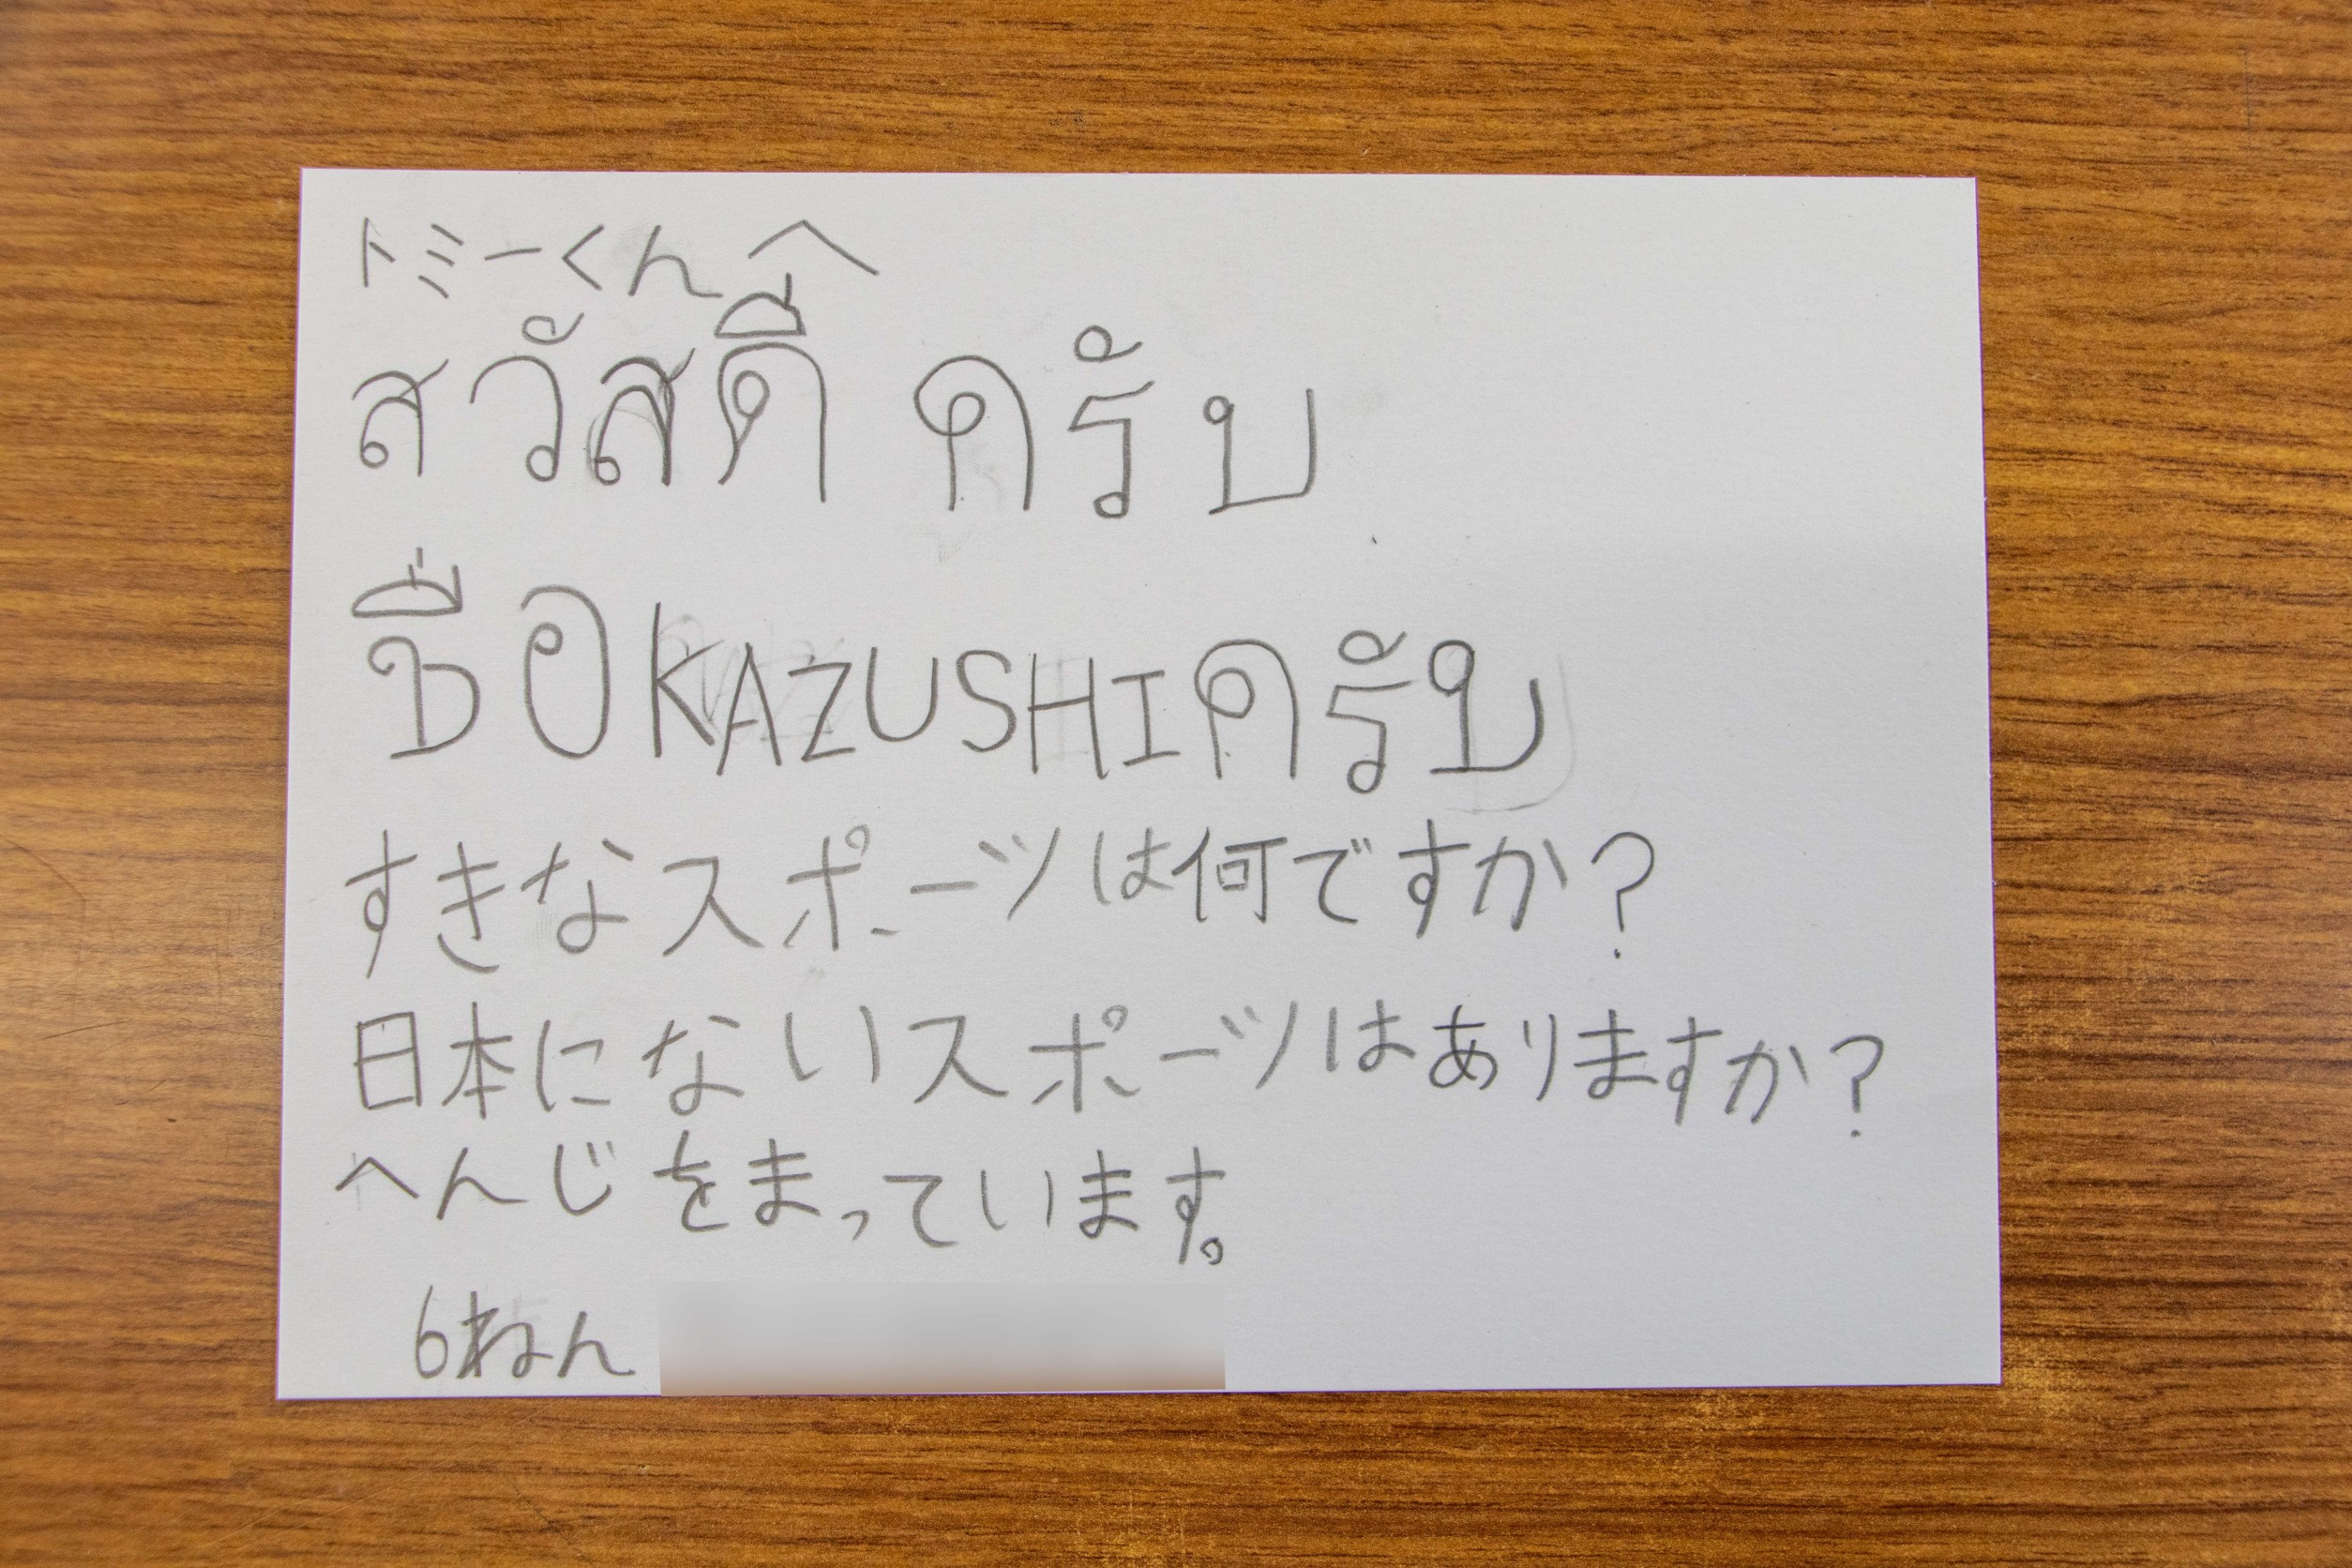 トミーくんへ
สวัสดี ครับ
ชื่อ KAZUSHI ครับ
すきなスポーツは何ですか？
日本にないスポーツはありますか？
へんじをまっています。
6ねん